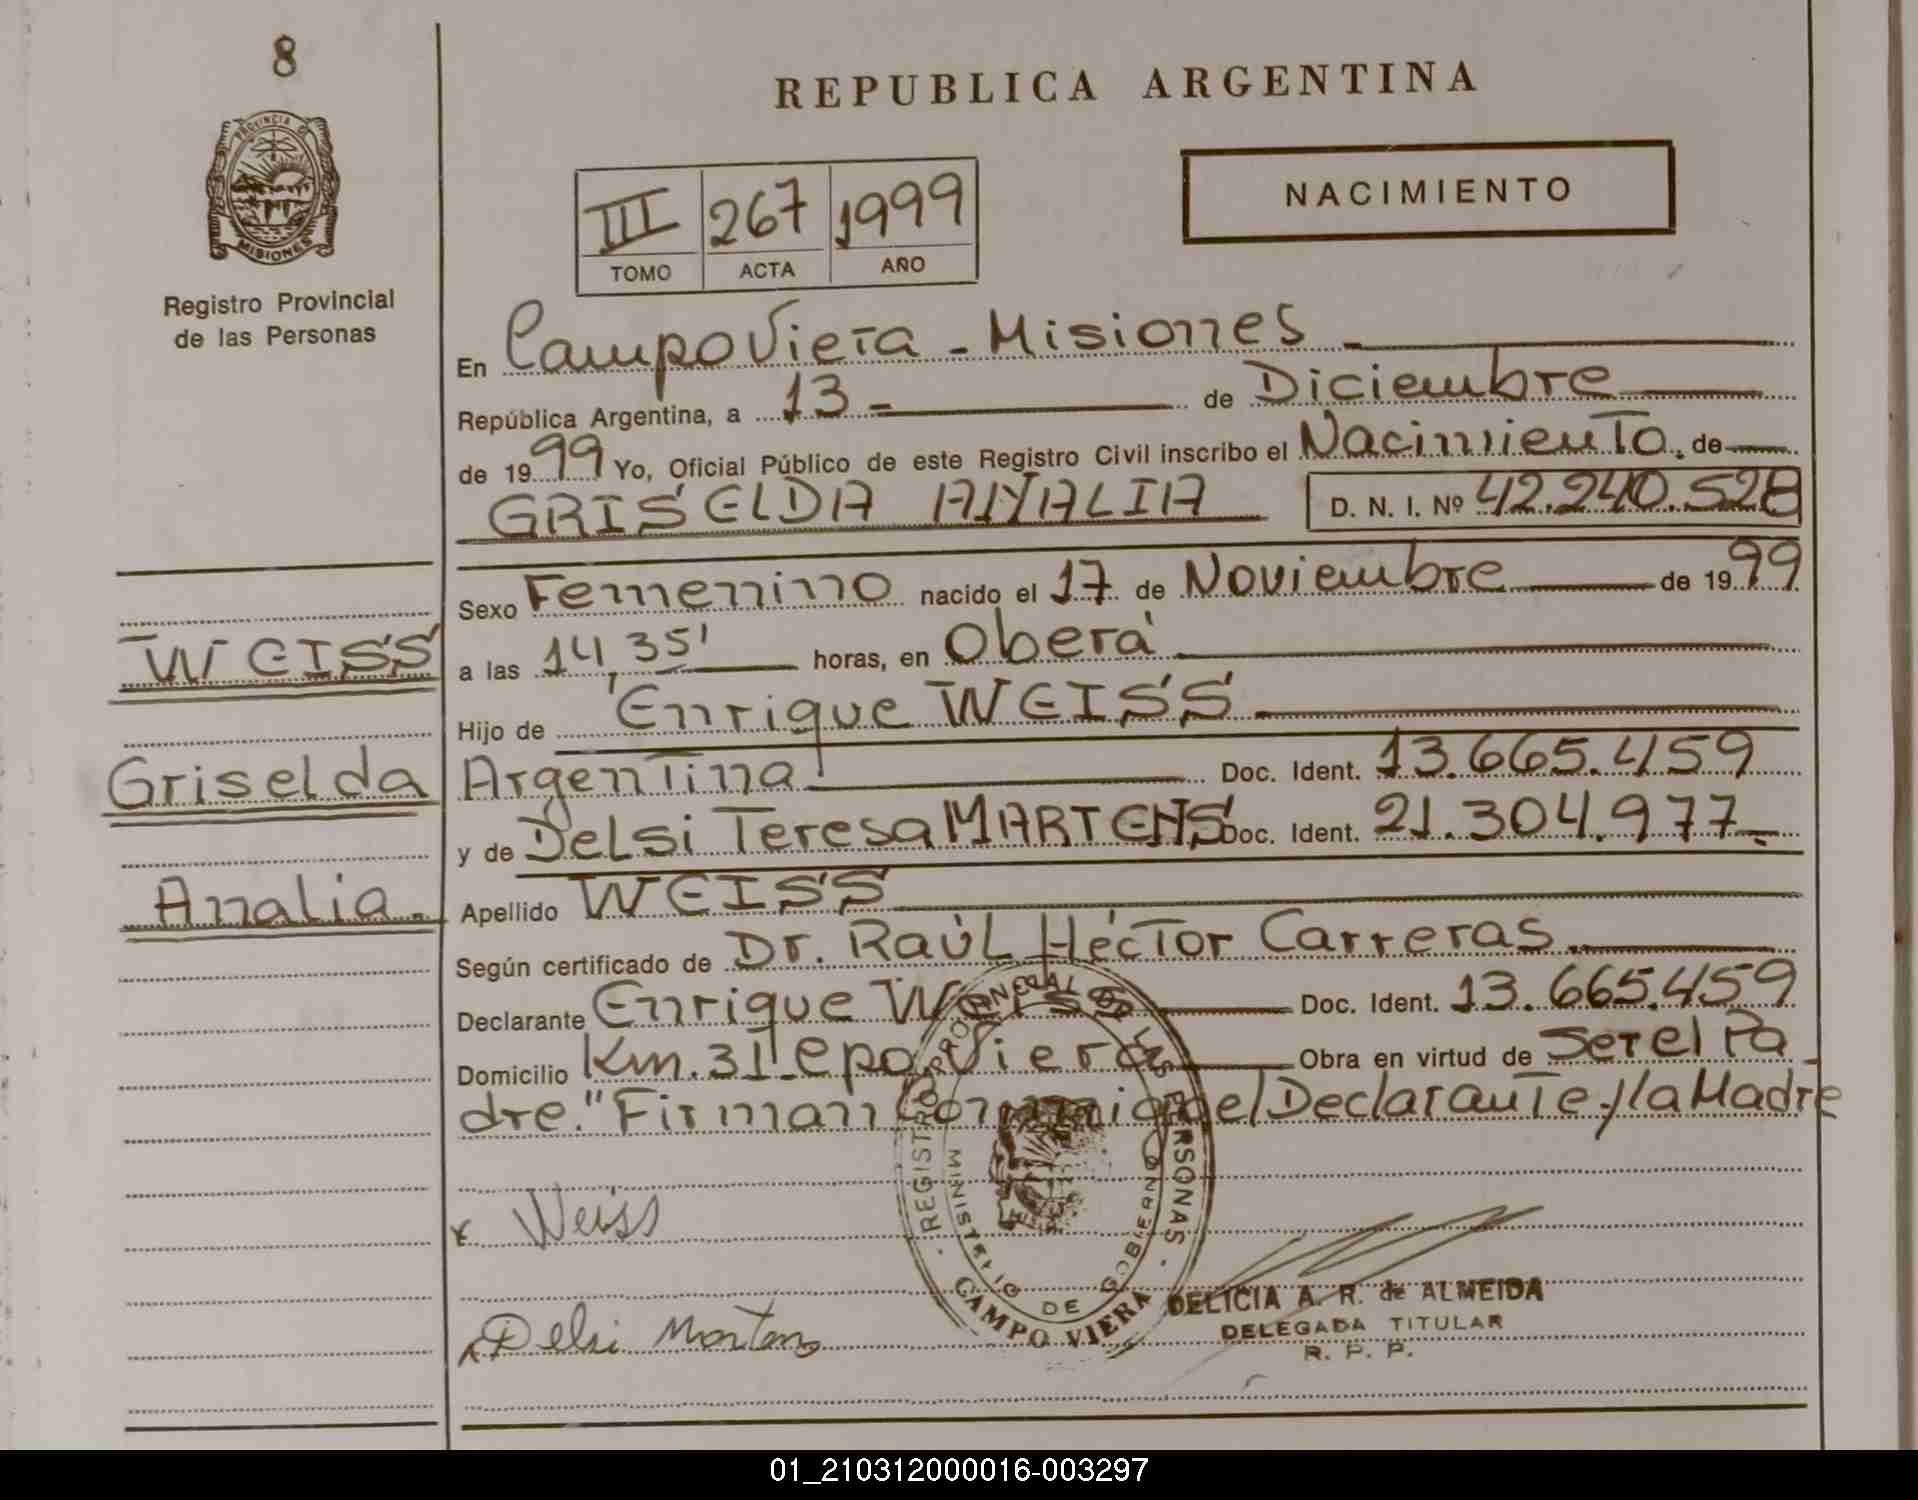 8
REPUBLICA ARGENTINA
PROVINCIA DE
MISIONES
Registro Provincial
de las Personas
III 267 1999
TOMO ACTA AÑO
NACIMIENTO
En Campo Viera - Misiones
República Argentina, a 13 - de Diciembre
de 1999 Yo, Oficial Público de este Registro Civil inscribo el Nacimiento. de
GRISELDA ANALIA D. N. I. Nº 42.240.528
Sexo Femenino nacido el 17 de Noviembre de 1999
WEISS
a las 14,35' horas, en Oberá
Hijo de Enrique WEISS
Griselda
Argentina Doc. Ident. 13.665.459
y de Delsi Teresa MARTENS Doc. Ident. 21.304.977.-
Analia.
Apellido WEISS
Según certificado de Dr. Raúl Héctor Carreras.
Declarante Enrique Weiss Doc. Ident. 13.665.459
Domicilio Km. 31 - Cpo Viera Obra en virtud de ser el Pa
dre." Firman Conmigo el Declarante y la Madre
REGISTRO PROVINCIAL DE LAS PERSONAS
MINISTERIO DE GOBIERNO
CAMPO VIERA
x Weiss
x Delsi Martens
DELICIA A. R. de ALMEIDA
DELEGADA TITULAR
R. P. P.
01_210312000016-003297